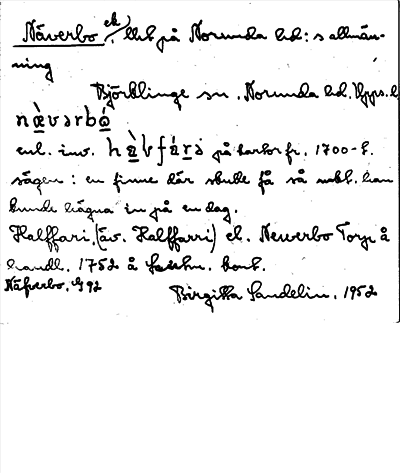 Näverbo, ek, litet på Norunda hd:s allmän-
ning
Björklinge sn. Norunda hd. Upps. l
nævərbó
enl. inv. hàlfárə på kartor fr. 1700-t.
sägen: en finne där skulle få så mkt. han
kunde hägna in på en dag.
Halffari, (äv. Halffarri) el. Newerbo Torp å
handl. 1752 å kont.
Näfverbo. G 92
Birgitta Sandelin. 1952